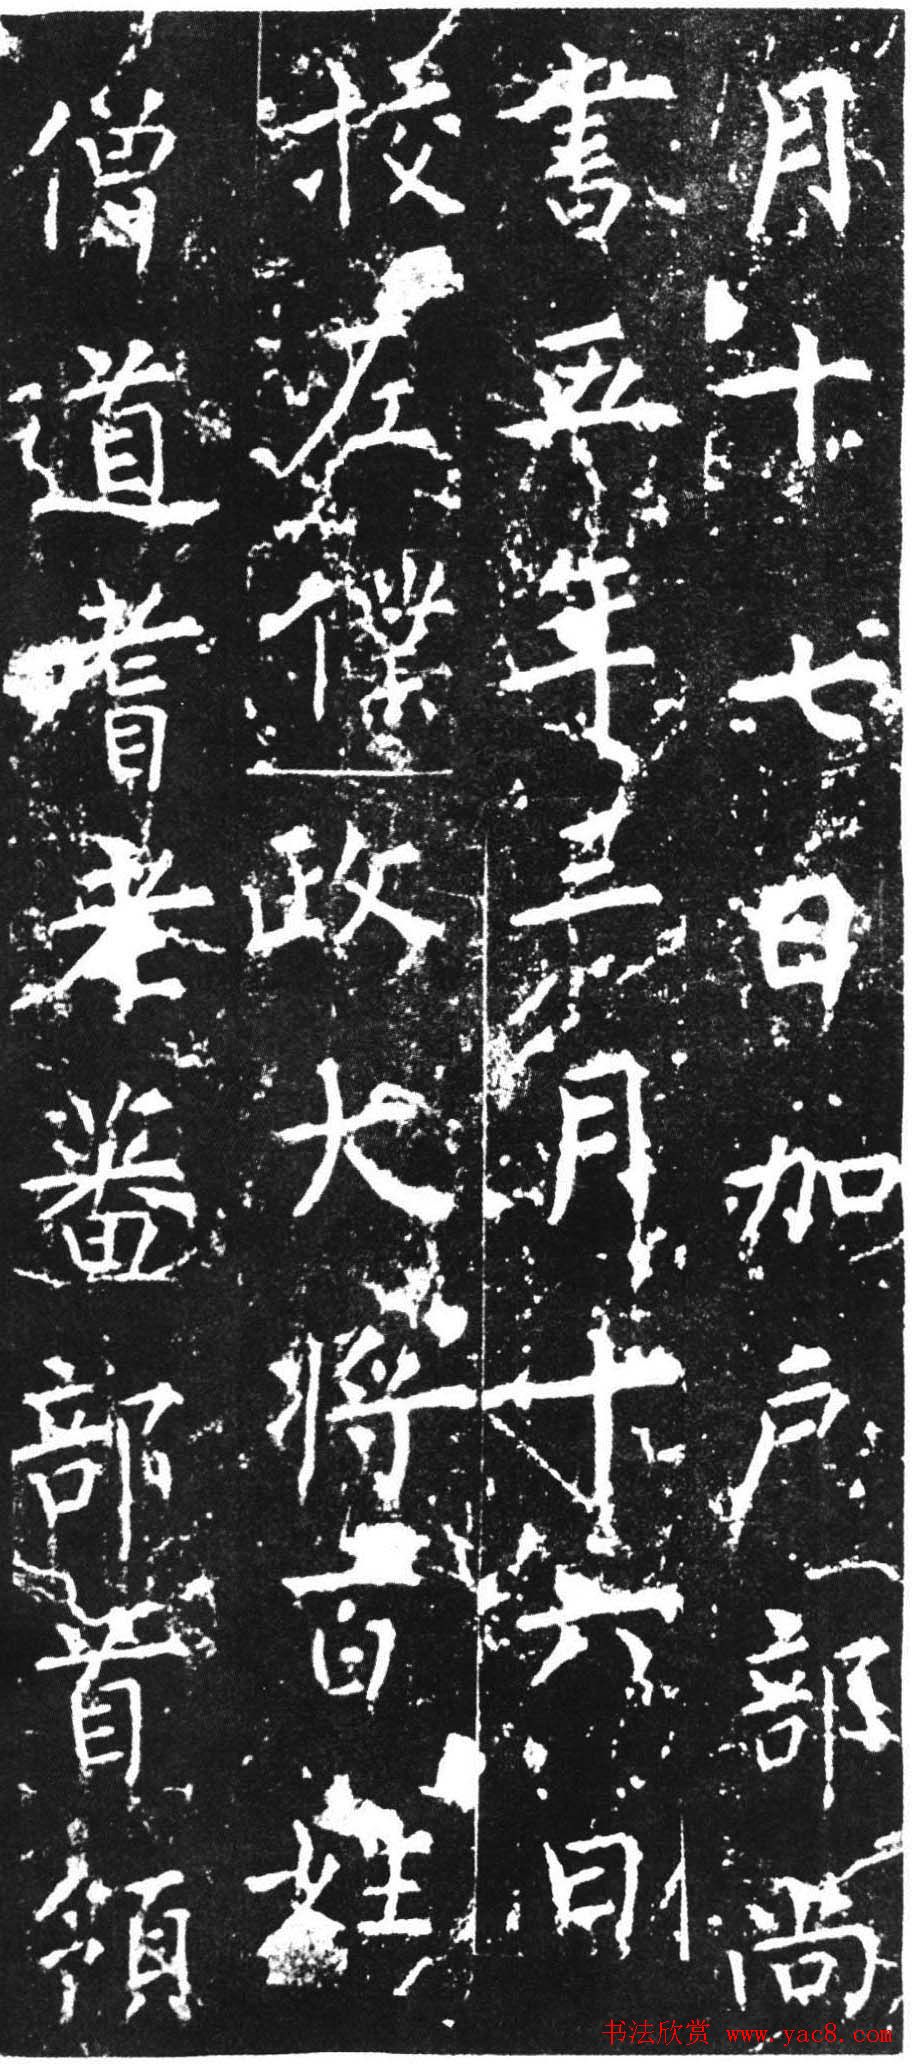 月十七日加戶部尚
書五年三月十六日
校左僕政大将百姓
僧道耆老蕃部首領
书法欣赏 www.yac8.com